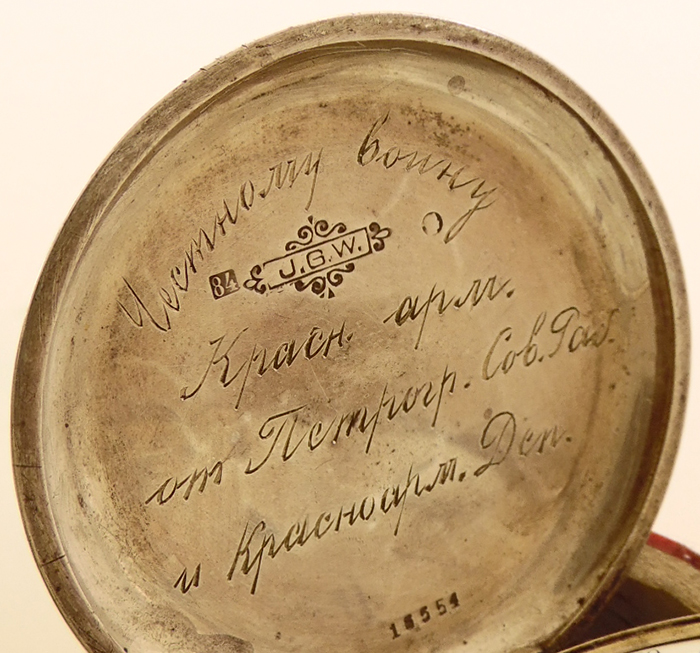 Честному воину
84 J.G.W.
Красн. арм.
от Петрогр. Сов. Раб.
и Красноарм. Деп.
18554